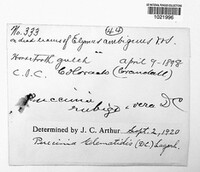 1021996
No. 333 (44)
on dead leaves of Elymus ambiguus V & S.
Horsetooth gulch April 9 - 1898
C.S.C. Colorado (Crandall)
Puccinia rubigo-vera DC
Determined by J. C. Arthur Sept. 2, 1920
Puccinia Clematidis (DC.) Lagerh.